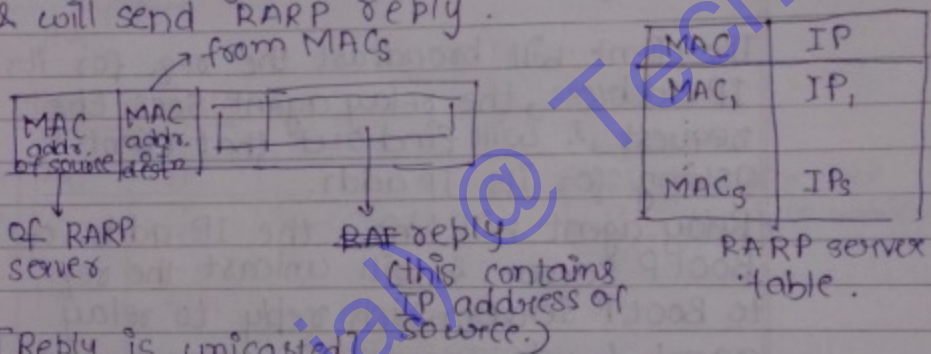 & will send RARP reply.
from MACs
MAC addr. of source
MAC addr. destn
of RARP server
reply
(this contains IP address of source.)
MAC IP
MAC1 IP1
MACs IPs
RARP server table.
[Reply is unicasted]
ial) @ Tech